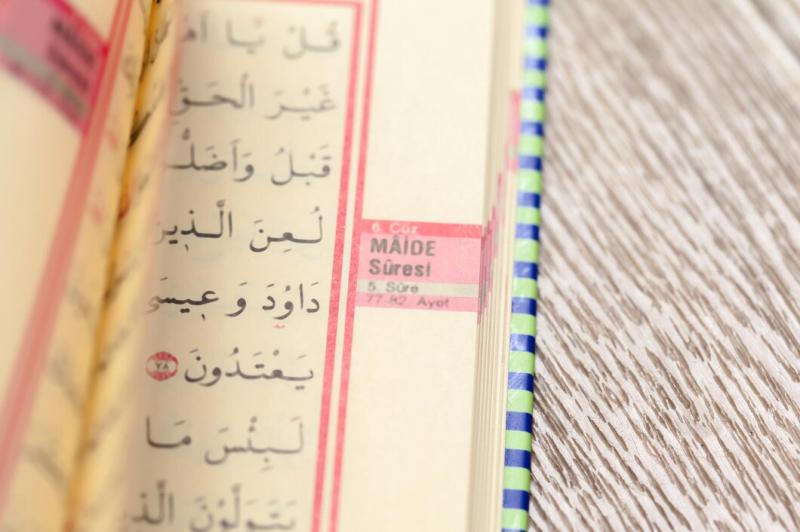 قُلْ يَٓا
غَيْرَ الْحَقِّ
قَبْلُ وَاَضَلُّ
لُعِنَ الَّذ۪ينَ
دَاوُ۫دَ وَع۪يسَى
يَعْتَدُونَ ٧٨
لَبِئْسَ مَا
يَتَوَلَّوْنَ
6. Cüz
MÂİDE
Sûresi
5. Sûre
77-82. Ayet